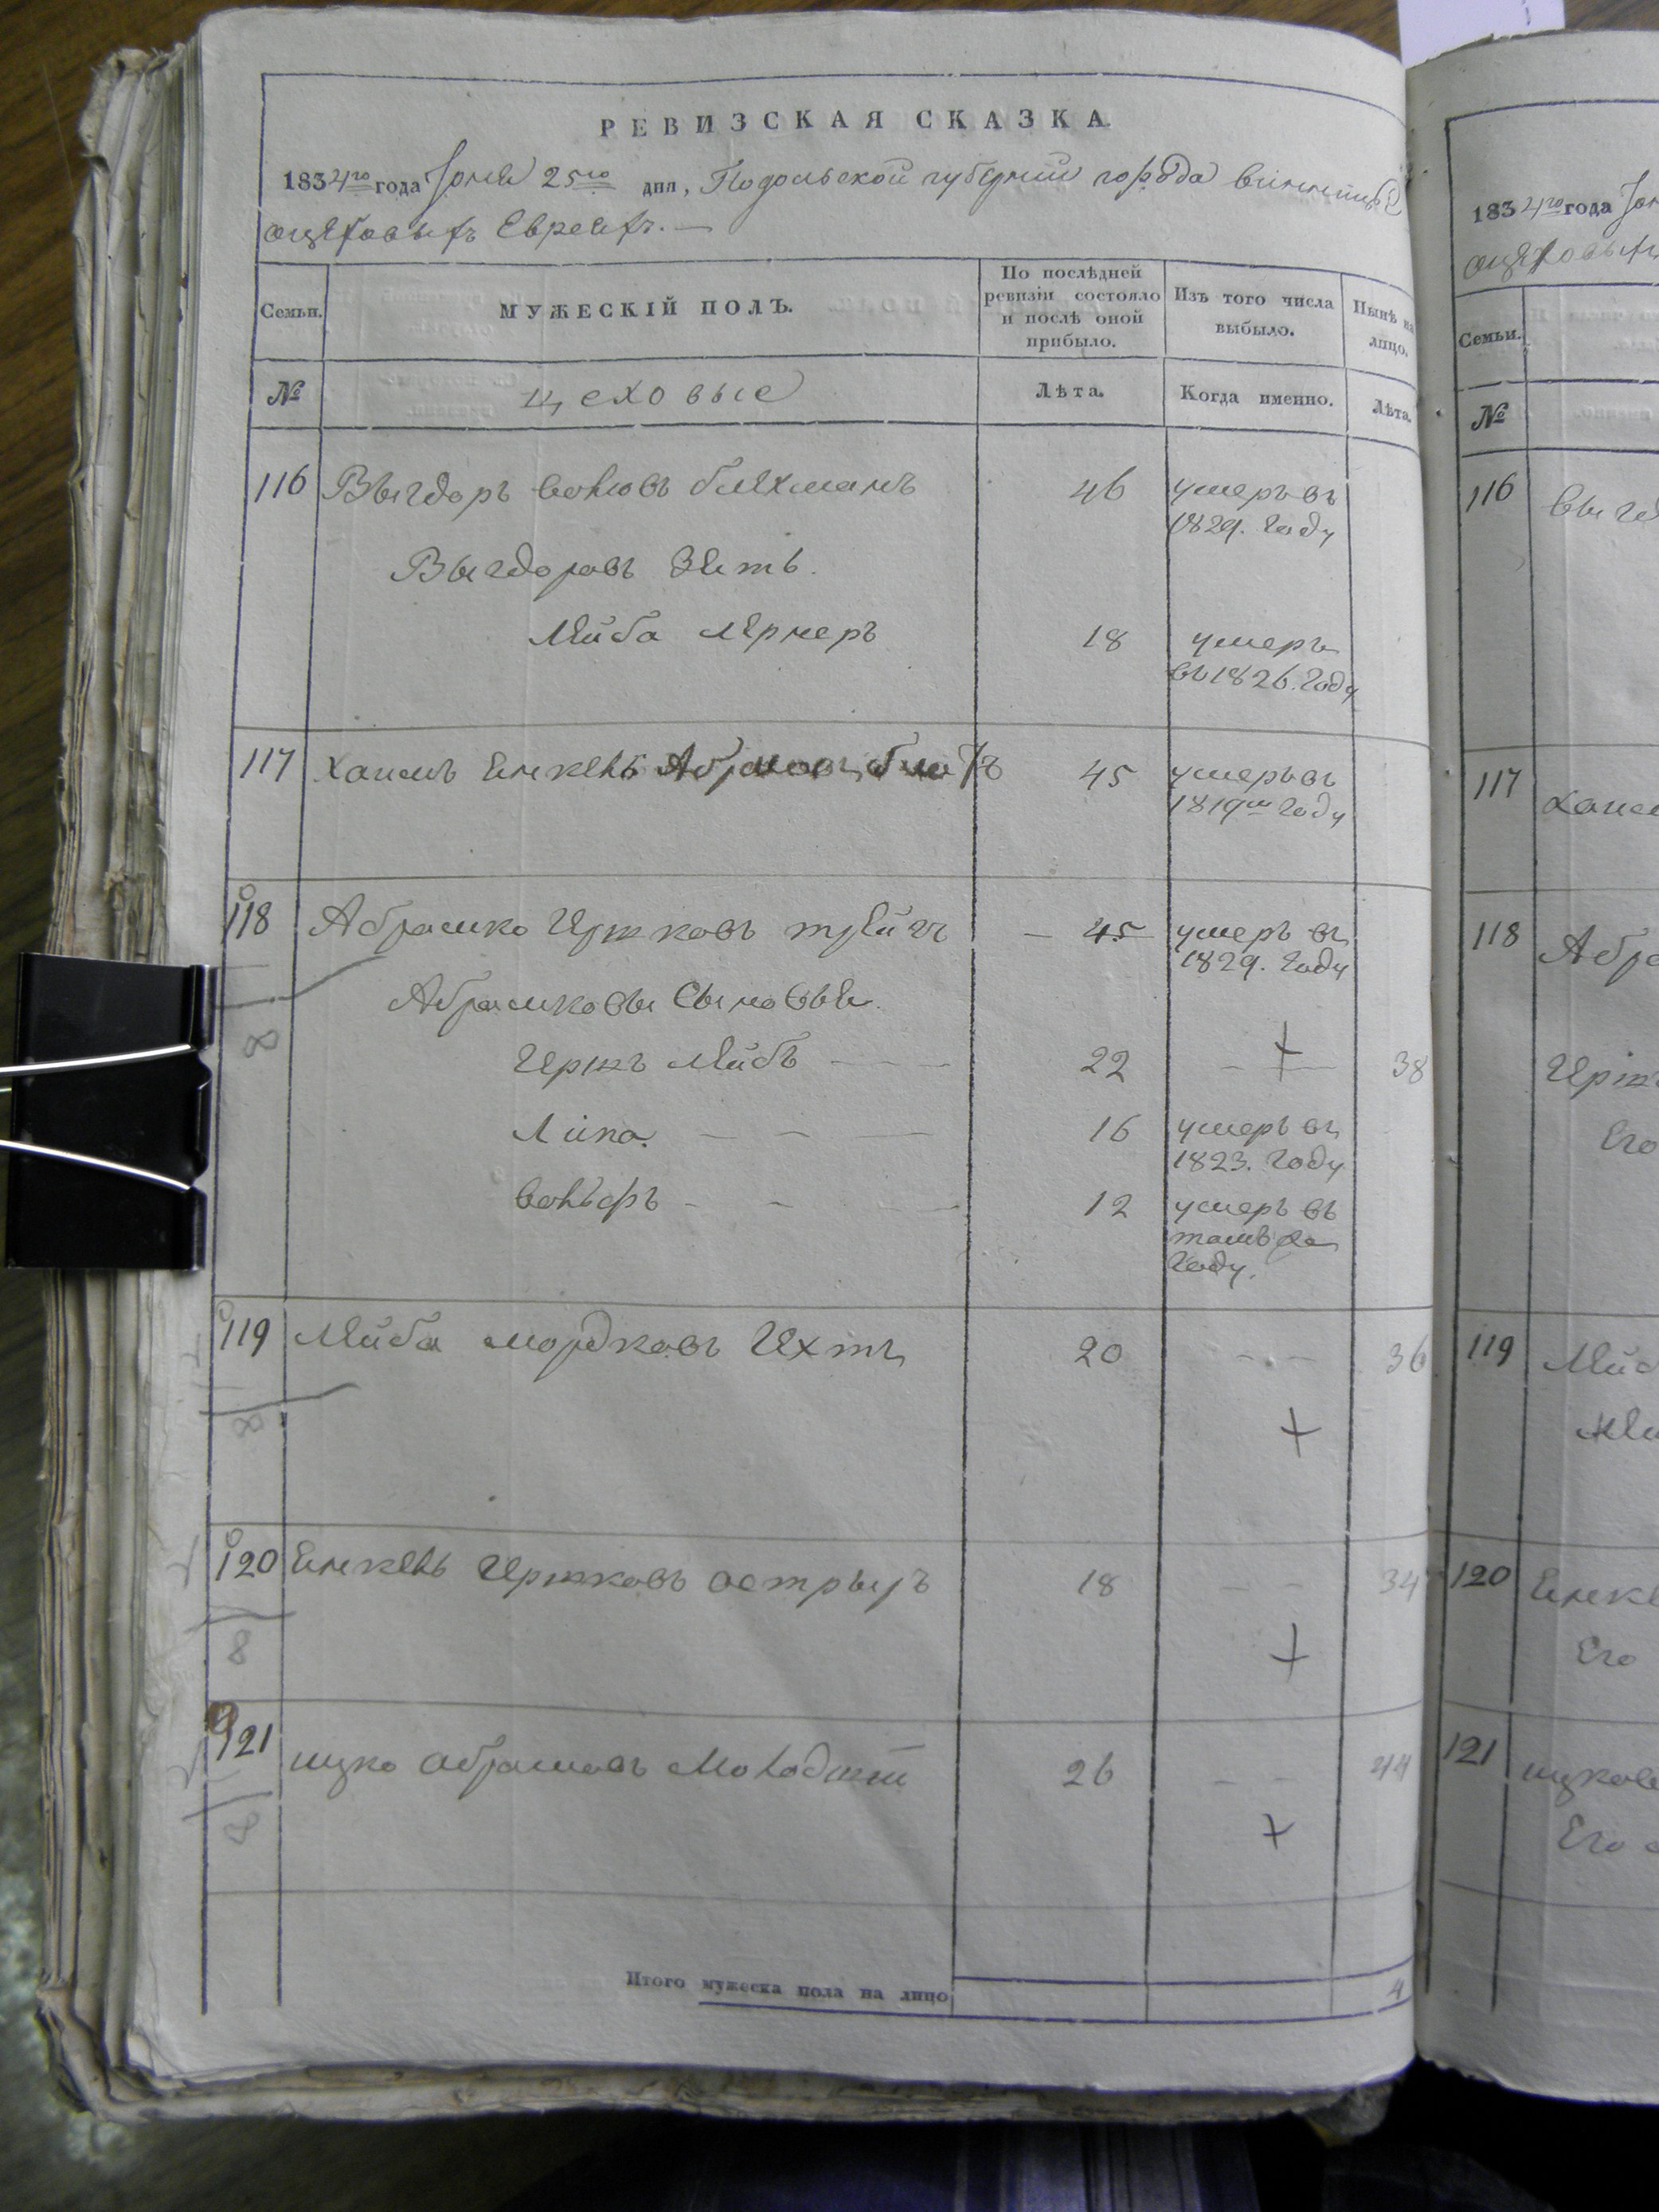 РЕВИЗСКАЯ СКАЗКА.
1834го года Іюня 25го дня, Подольской губерніи города винницы
оцеховыхъ Евреяхъ.—
Семьи.
МУЖЕСКІЙ ПОЛЪ.
По послѣдней ревизіи состояло и послѣ оной прибыло.
Изъ того числа выбыло.
Нынѣ на лицо.
№
цеховые
Лѣта.
Когда именно.
Лѣта.
116 Выгдоръ вольовъ бляхманъ 46 умеръ въ
1829. Году
Выгдоровъ Зять.
Лейба лернеръ 18 умеръ
въ 1826. Году
117 Хаимъ Янкель 45 умеръ въ
1819м Году
118 Абрамко Иржковъ — 45 умеръ въ
1829. Году
Абрамковы Сыновья.
Иржъ Лейбъ — — — 22 — + — 38
Липа. — — — 16 умеръ въ
1823. Году
вольфъ — — — 12 умеръ въ
томъ же
Году.
119 Лейба мордковъ 20 — — 36
+
8
120 Янкель Иржковъ острыръ 18 — — 34
8 +
121 ицко абрамовъ 26 — — 44
8 +
Итого мужеска пола на лицо 4
183 4го года
Семьи.
№
116
117
118 Абра
Его
119
120 Янке
Его
121
Его